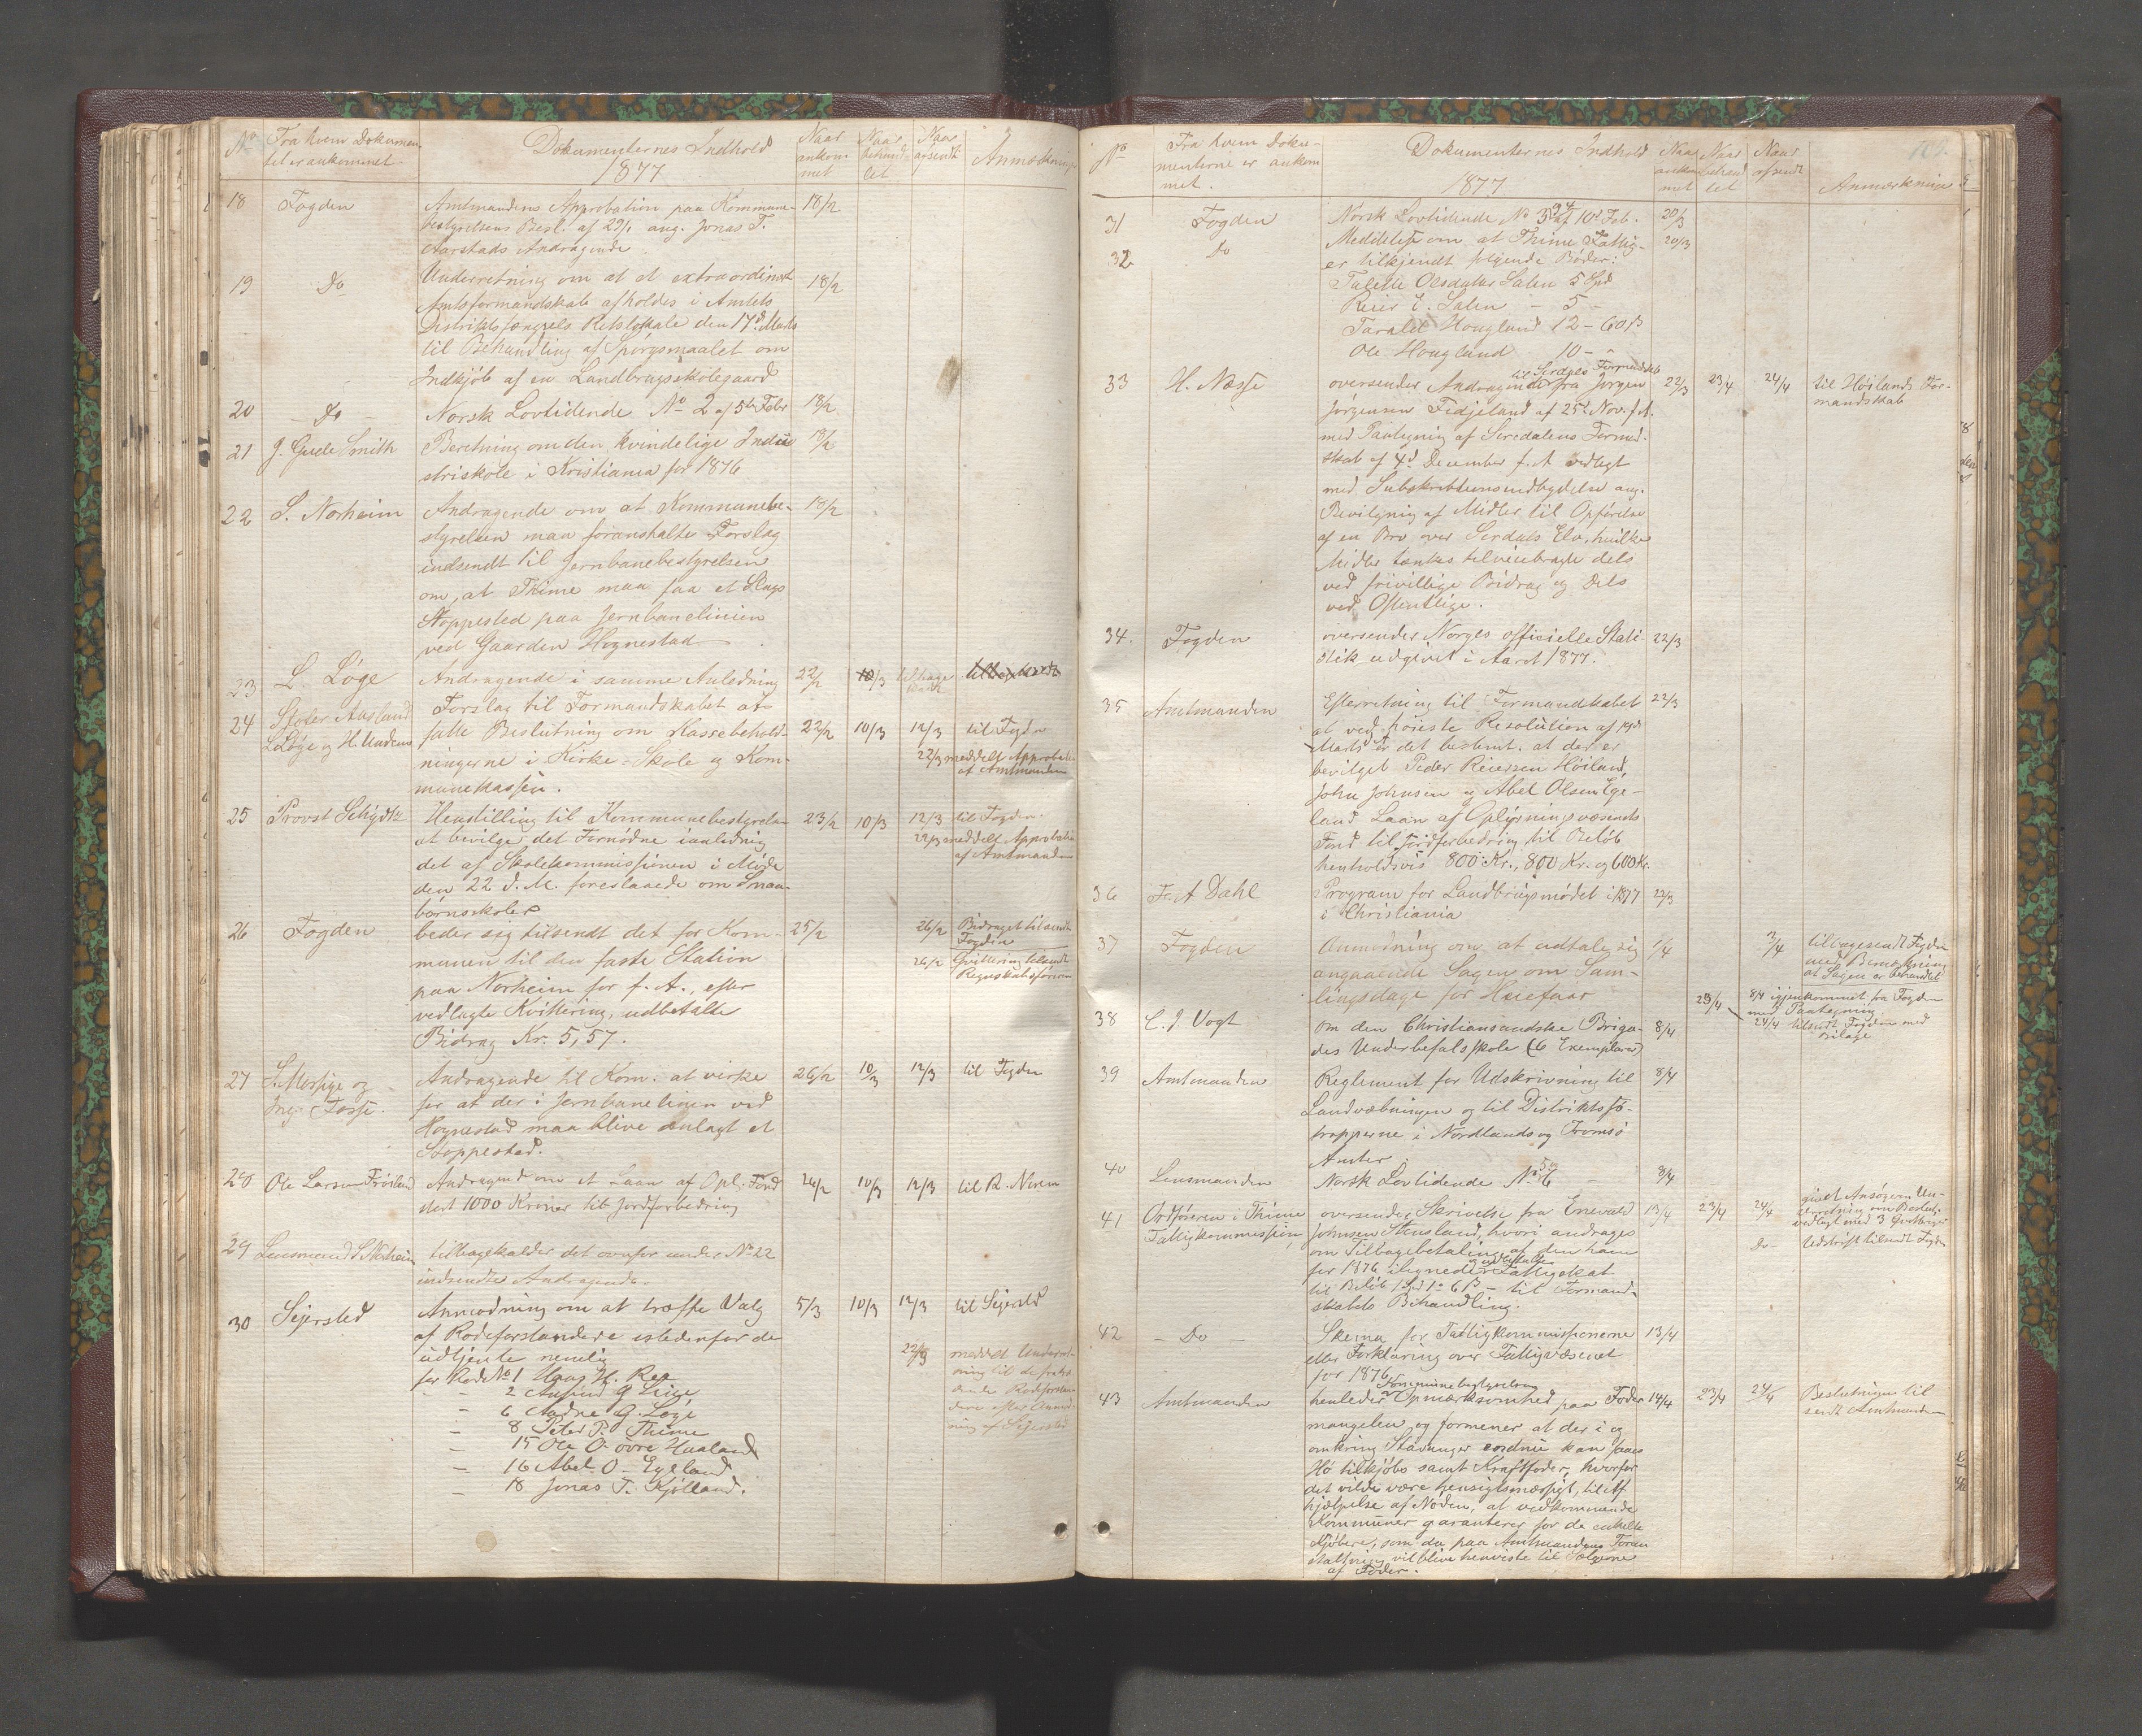 No Fra hvem Dokumen- Dokumenternes Indhold Naar Naar Naar Anmærkninger
tet er ankommet 1877 ankom behand afsendt
met let
18 Fogden Amtmandens Approbation paa Kommune- 18/2
bestyrelsens Besl. af 29/1 ang. Jonas T.
Aarstads Andragende.
19 Do Underretning om at et extraordinært 18/2
Amtsformandskab afholdes i Amtets
Distriktsfængsels Retslokale den 17d Marts
til Behandling af Spørgsmaalet om
Indkjøb af en Landbrugsskolegaard
20 Do Norsk Lovtidende No 2 af 5te Febr 18/2
21 J. Gude Smith Beretning om den kvindelige Indu- 18/2
striskole i Kristiania for 1876
22 S. Norheim Andragende om at Kommunebe- 18/2
styrelsen maa foranstalte Forslag
indsendt til Jernbanebestyrelsen
om, at Thime maa faa et Slags
Stoppested paa Jernbanelinien
ved Gaarden Hognestad
23 L. Løge Andragende i samme Anledning 22/2 10/3 tilbage
24 Forslag til Formandskabet at
L Løge og H. Undem fatte Beslutning om Kassebehold- 22/2 10/3 12/3 til Fogden
ningerne i Kirke- Skole og Kom- 22/3 meddelt Approbation
munekassen. af Amtmanden
25 Provst Schjdtz Henstilling til Kommunebestyrelsen 23/2 10/3 12/3 til Fogden.
at bevilge det Fornødne ianledning 22/3 meddelt Approbation
det af Skolekommissionen i Møde af Amtmanden
den 22 d. M. foreslaaede om Smaa-
børnsskoler
26 Fogden beder sig tilsendt det for Kom- 25/2 26/2 Bidraget tilsendt
munen til den faste Station Fogden
paa Norheim for f. A., efter 26/2 Qvittering tilsendt
vedlagte Kvittering, udbetalte Regnskabsføreren
Bidrag Kr. 5,57.
27 Andragende til Kom. at virke 26/2 10/3 12/3 til Fogden
for at der i Jernbanelinien ved
Hognestad maa blive anlagt et
Stoppested.
28 Ole Larsen Frøiland Andragend om et Laan af Opl. Fond 26/2 10/3 12/3 til R. Nerem
stort 1000 Kroner til Jordforbedring
29 Lensmand S Norheim tilbagekalder det ovenfor under No 22
indsendte Andragende.
30 Sejersted Anmodning om at træffe Valg 5/3 10/3 12/3 til Sejersted
af Rodeforstandere istedenfor de
udtjente nemlig 22/3 meddelt Underret-
for Rode No 1 Hans H. Ree ning til de fratræ
- 2 G Lige dende Rodeforstan
- 6 Andre G. Løge dere efter Anmod
- 8 Peder P. Thime ning af Sejersted
- 15 Ole O. øvre Haaland
- 16 Abel O- Egeland
- 18 Jonas T. Kjølland.
No Fra hvem Doku- Dokumenternes Indhold Naar Naar Naar Anmærkninger
menterne er ankom 1877 ankom behand afsendt
met. met let
31 Fogden Norsk Lovtidende No 3 af 10d Feb. 20/3
32 Do Meddelelse om at Thime Fattig- 20/3
er tilkjendt følgende Bøder:
Talette Olsdatter Salen 5 Spd
Reier E. Salen - 5 -
Tarald Hougland 12 - 60 β
Ole Hougland 10 -
til Serdals Formandskab
33 H. Næsse oversender Andragende fra Jørgen 22/3 23/4 24/4 til Høilands For-
Jørgensen Fidjeland af 25d Nov. f.A. mandskab
med Paategning af Siredalens Formd.
skab af 4d December f. A vedlagt
med Subskribtionsindbydelse ang.
Bevilgning af Midler til Opførelse
af en Bro over Serdals Elv, hvilke
Midler tænkes tilveiebragte dels
ved frivillige Bidrag og dels
ved Offentlige.
34. Fogden oversender Norges officielle Stati- 22/3
stik udgivet i Aaret 1877.
35 Amtmanden Efterretning til Formandskabet 22/3
at ved høieste Resolution af
Marts er det bestemt. at der er
bevilget Peder Reiersen Høiland,
John Johnsen og Abel Olsen Ege-
land Laan af Oplysningsvæsenets
Fond til Jordforbedring til Beløb
henholdsvis 800 Kr., 800 Kr. og 600 Kr.
36 Fr. A Dahl Program for Landbrugsmødet i 1877 22/3
i Christiania
37 Fogden Anmodning om at udtale sig 1/4 3/4 tilbagesendt Fogden
angaaende Sagen om Sam- med Bemærkning
lingsdage for Heiefaar at Sagen er behandlet
23/4 8/4 igjenkommet fra Fogden
med Paategning
38 C. J. Vogt Om den Christiansandske Briga- 8/4 24/4 tilsendt Fogden med
des Underbefalsskole (6 Exemplarer) Bilage
39 Amtmanden Reglement for Udskrivning til 8/4
Landvæbningen og til Distrikts
tropperne i Nordlands og Tromsø
Amter.
40 Lensmanden Norsk Lovtidende No 5 6 8/4
41 Ordføreren i Thime oversender Skrivelse fra Enevald 13/4 23/4 24/4 givet Ansøgeren Un-
Fattigkommission Johnsen Stensland, hvori andrages derretning om Beslut.
om Tilbagebetaling af den ham vedlagt med 3
for 1876 ilignede Fattigskat Do Udskrift tilsendt Fogden
til Beløb 1 Spd 1 6 β - til Formand-
skabets Behandling.
42 - Do - Skema for Fattigkommissionerne 13/4
eller Forklaring over Fattigvæsenet
for 1876.
Kommunebestyrelsens
43 Amtmanden henleder Opmærksomhed paa Foder- 14/4 23/4 24/4 Beslutningen til
mangelen, og formener at der i og sendt Amtmanden
omkring Stavanger endnu kan faaes
Hø tilkjøbs samt Kraftfoder, hvorfor
det vilde være hensigtsmæssigt, til Af
hjælpelse af Nøden, at vedkommende
Kommuner garanterer for de enkelte
Kjøbere, som da paa Amtmandens Foran
staltning vil blive henviste til Sælgerne
af Foder.